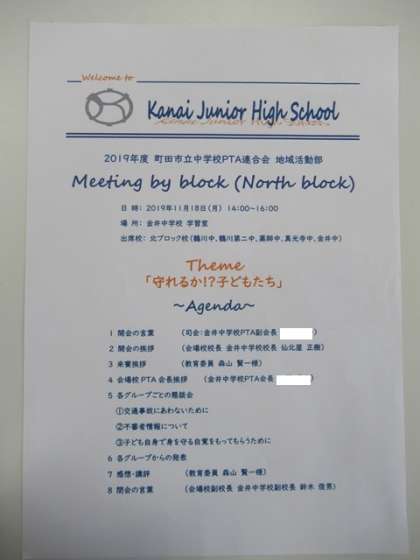 Welcome to
Kanai Junior High School
2019年度 町田市立中学校PTA連合会 地域活動部
Meeting by block (North block)
日 時： 2019年11月18日(月) 14:00～16:00
場 所： 金井中学校 学習室
出席校： 北ブロック校(鶴川中、鶴川第二中、薬師中、真光寺中、金井中)
Theme
「守れるか!?子どもたち」
～Agenda～
1 開会の言葉 (司会:金井中学校PTA副会長
2 開会の挨拶 (会場校校長 金井中学校校長 仙北屋 正樹)
3 来賓挨拶 (教育委員 森山 賢一様)
4 会場校 PTA 会長挨拶 (金井中学校PTA会長
5 各グループごとの懇談会
①交通事故にあわないために
②不審者情報について
③子ども自身で身を守る自覚をもってもらうために
6 各グループからの発表
7 感想・講評 (教育委員 森山 賢一様)
8 閉会の言葉 (会場校副校長 金井中学校副校長 鈴木 俊男)